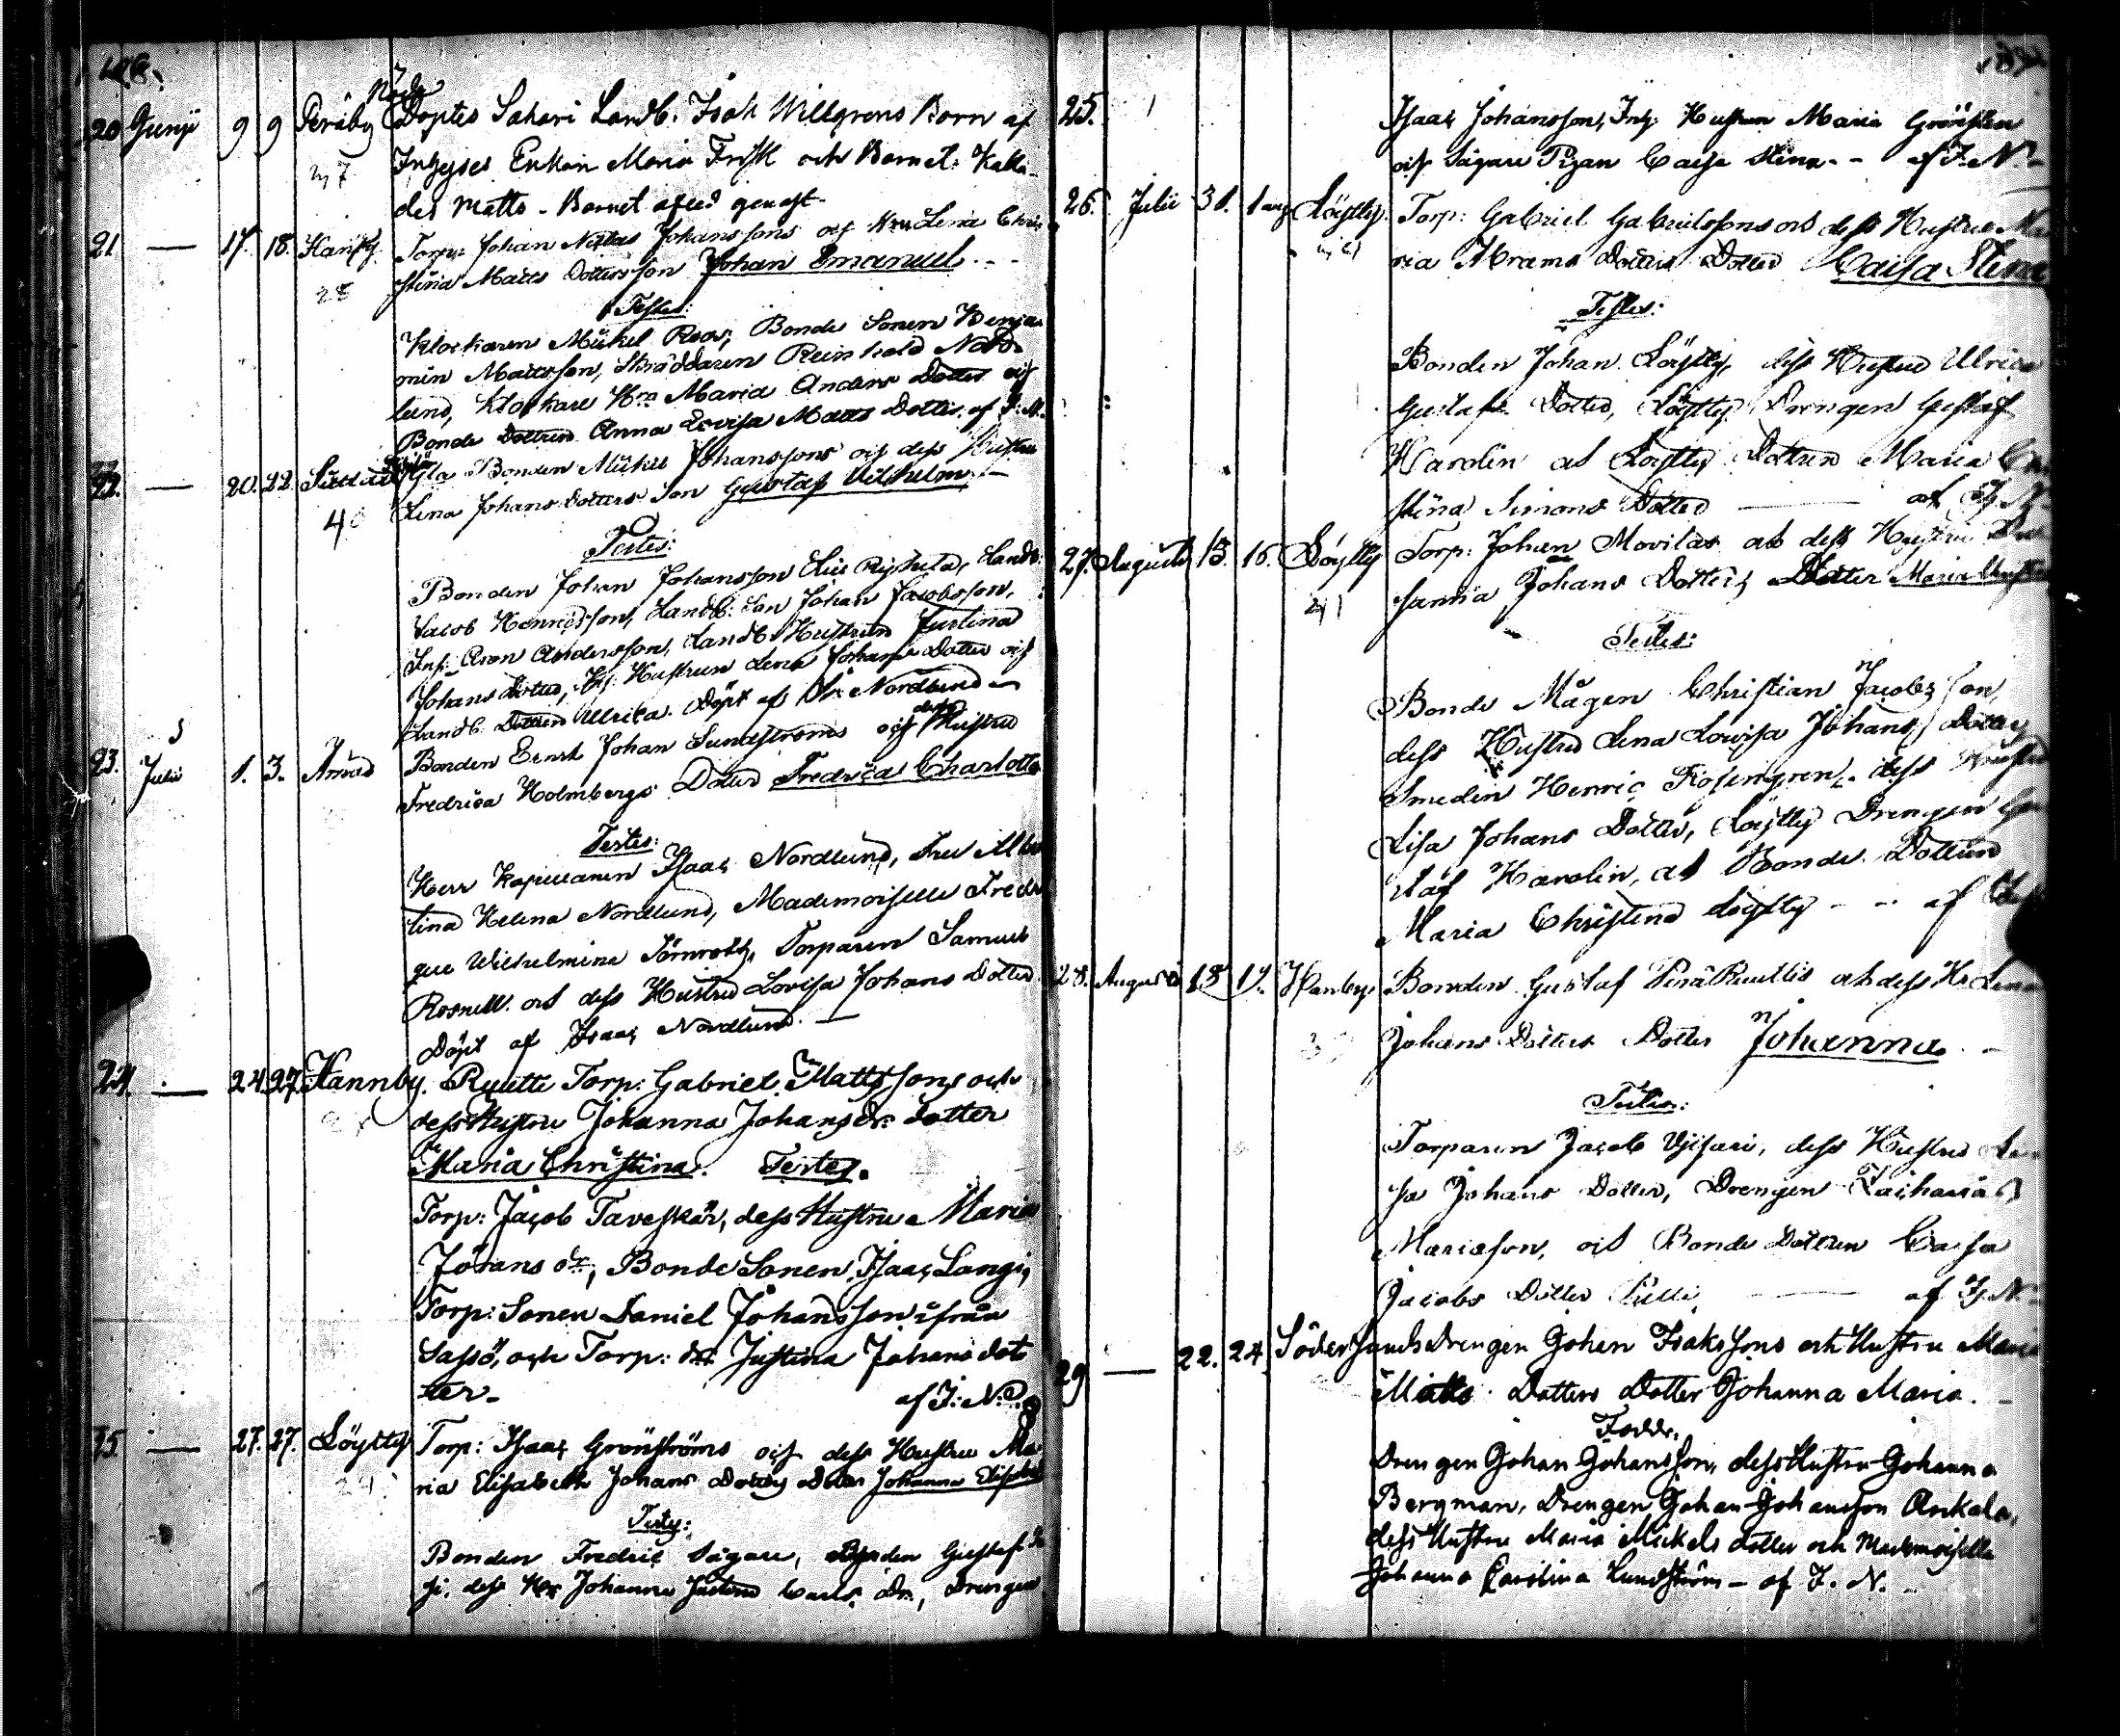 Nöd
20 Junii 9 9 Peräby Döptes Sakari Landb. Isak Willgrens Barn af
Inhyses Enkan Maria Frisk och Barnet: kalla-
des Matts - Barnet afled genast.
21. — 17. 18. Torp: Johan Niklas Johanssons och Hru Lena Chri
stina Matts Dotters son Johan Emanuel - -
28
Testes:
Klockaren Mickel Roos, Bonde Sonen Benja
min Mattsson, Skräddaren Reinhold Nord-
lund, Klockare Hru Maria Anders Dotter och
Bonde Dottren Anna Lovisa Matts Dotter. af I. N.
22. — 20. 22. Bonden Mickel Johanssons och dess Hustru
40 Lena Johans Dotters Son Gustaf Vilhelm —
Testes:
Bonden Johan Johansson Landb:
Jacob Henricsson, Landb: Son Johan Jacobsson,
Inh: Aron Andersson, Landb. Hustrun Justina
Johans Dotter, Hustrun Lena Johans Dotter och
Landb. Dottren Ulrica. Döpt af Nordlund —
23. Julii 1. 3. Bonden Ernst Johan Sundströms och dess Hustru
Fredrica Holmbergs Dotter Fredrica Charlotta
Testes:
Herr Kapellanen Isaac Nordlund, Fru Alber
tina Helena Nordlund, Mademoiselle Fredri
que Wilhelmina Torparen Samuel
Rosnell och dess Hustru Lovisa Johans Dotter.
Döpt af Isaac Nordlund. —
24. — 24. 27. Hannby. Ruutti Torp: Gabriel Mattssons och
dess Hustru Johanna Johans dr. dotter
Maria Christina. Testes.
Torp: Jacob Taveskär, dess Hustru Maria
Jörans dr, Bonde Sonen Isaac Langi,
Torp: Sonen Daniel Johansson ifrån
Sassö, och Torp: dr Justina Johans dot
ter - af I. N.
25 — 27. 27. Löytty Torp: Isaac Grönströms och dess Hustru Ma
ria Elisabeth Johans Dotters Dotter Johanna Elisabet
Testes:
Bonden Fredric Sägare, Bonden Gustaf
dess Hru Johanna Justina Carls Dr, Drengen
25. Isaac Johansson, Inh. Hustrun Maria Grönsten
och Sägare Pigan Caisa Stina - - af I. N.
26. Julii 31. 1 aug Löytty. Torp: Gabriel Gabrielssons och dess Hustru Ma
ria Abrams Dotters Dotter Caisa Stina
Testes:
Bonden Johan Löytty, dess Hustru Ulrica
Gustafs Dotter, Löytty Drengen Gustaf
Karolin och Löytty Dottren Maria Chri
stina Simons Dotter — af I. N.
27. Augusti 15. 16. Löytty Torp: Johan Movitas och dess Hustru
sanna Johans Dotters Dotter Maria
Testes:
Bonde Mågen Christian Jacobsson,
dess Hustru Lena Lovisa Johans Dotter
Smeden Henric Rosengren, dess Hustru
Lisa Johans Dotter, Löytty Drengen Gu
staf Karolin, och Bonde Dottren
Maria Christina Löytty - - af
28. Augusti 18 19. Hanby. Bonden Gustaf Perä Ruuttis och dess Hr Lena
Johans Dotters Dotter Johanna. -
Testes:
Torparen Jacob dess Hustru
sa Johans Dotter, Drengen Zacharias
Mariason, och Bonde Dottren Caisa
Jacobs Dotter — af I. N.
29 — 22. 24. Södersunds Drengen Johan Isakssons och Hustru Maria
Matts Dotters Dotter Johanna Maria. -
Faddr.
Drengen Johan Johansson, dess Hustru Johanna
Bergman, Drengen Johan Johansson Ankala,
dess Hustru Maria Mickels dotter och Mademoiselle
Johanna Carolina Lundström - af I. N.